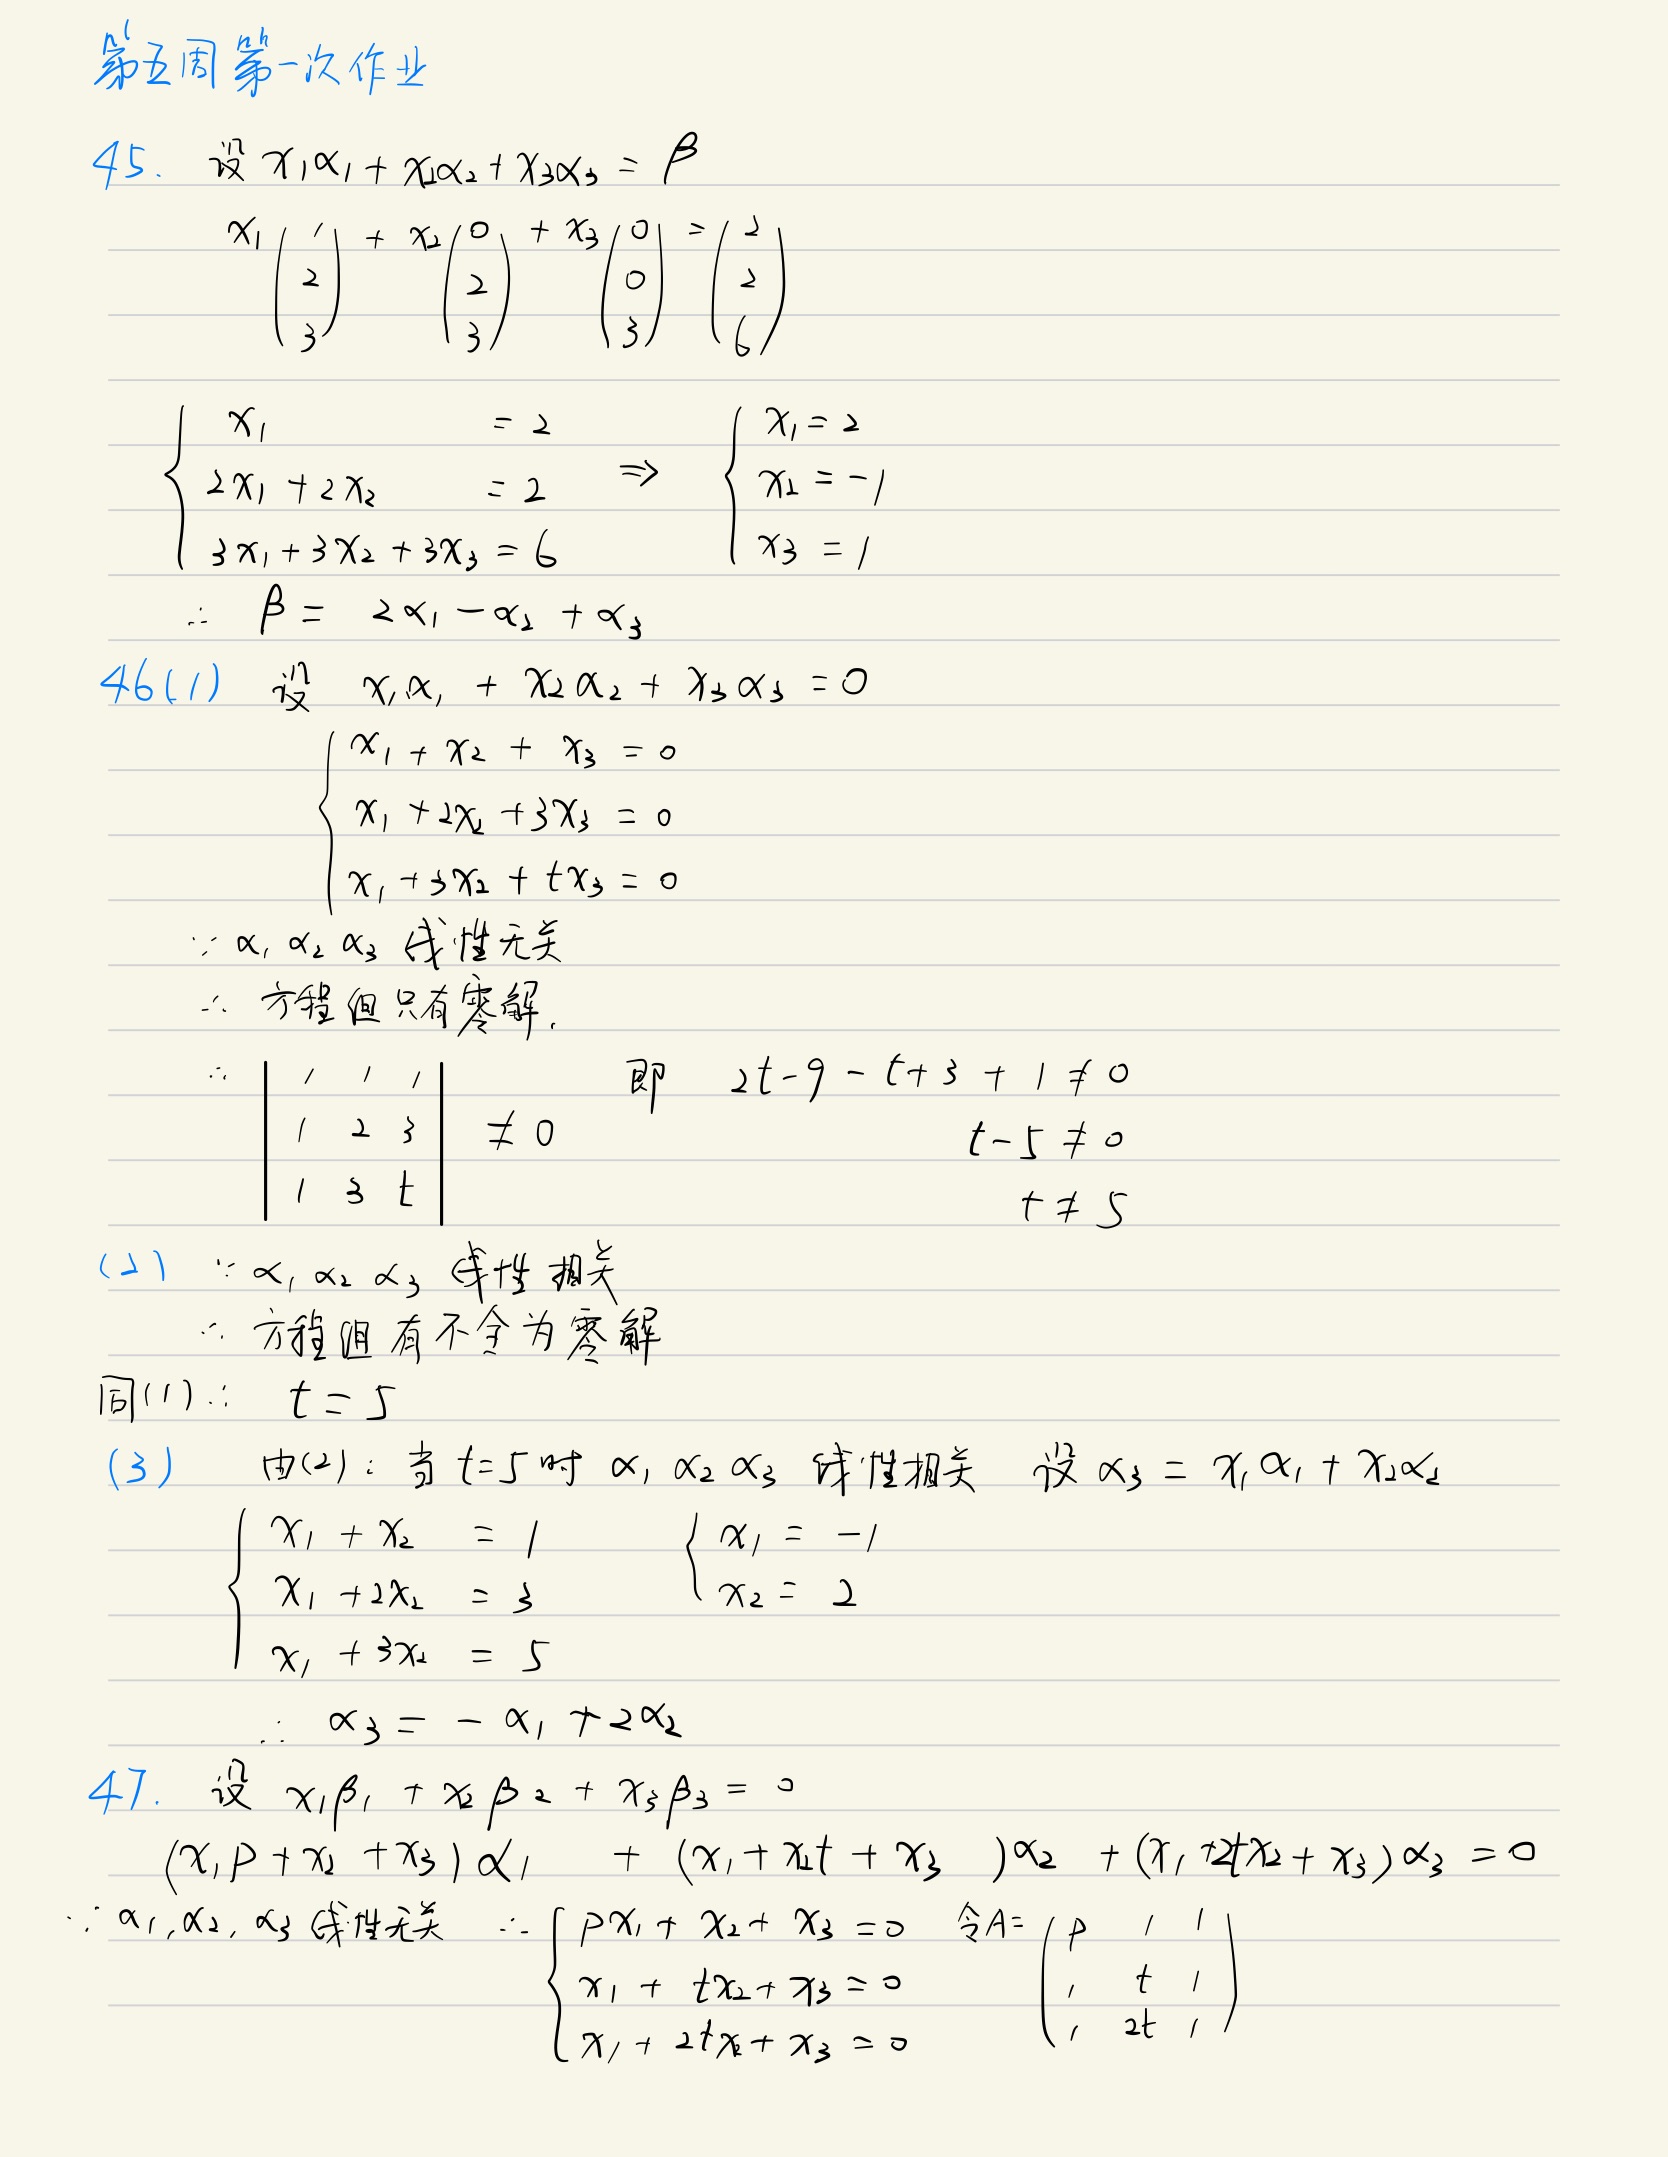 第五周第一次作业
45. 设 x₁α₁ + x₂α₂ + x₃α₃ = β
x₁ (1 2 3) + x₂ (0 2 3) + x₃ (0 0 3) = (2 2 6)
{ x₁ = 2 ⇒ { x₁ = 2
2x₁ + 2x₂ = 2 x₂ = -1
3x₁ + 3x₂ + 3x₃ = 6 x₃ = 1
∴ β = 2α₁ - α₂ + α₃
46(1) 设 x₁α₁ + x₂α₂ + x₃α₃ = 0
{ x₁ + x₂ + x₃ = 0
x₁ + 2x₂ + 3x₃ = 0
x₁ + 3x₂ + tx₃ = 0
∵ α₁ α₂ α₃ 线性无关
∴ 方程组只有零解.
∴ | 1 1 1 | 即 2t - 9 - t + 3 + 1 ≠ 0
| 1 2 3 | ≠ 0 t - 5 ≠ 0
| 1 3 t | t ≠ 5
(2) ∵ α₁ α₂ α₃ 线性相关
∴ 方程组有不全为零解
同(1) ∴ t = 5
(3) 由(2): 当 t=5 时 α₁ α₂ α₃ 线性相关 设 α₃ = x₁α₁ + x₂α₂
{ x₁ + x₂ = 1 { x₁ = -1
x₁ + 2x₂ = 3 x₂ = 2
x₁ + 3x₂ = 5
∴ α₃ = - α₁ + 2α₂
47. 设 x₁β₁ + x₂β₂ + x₃β₃ = 0
(x₁p + x₂ + x₃) α₁ + (x₁ + x₂t + x₃ )α₂ + (x₁ + 2tx₂ + x₃) α₃ = 0
∵ α₁, α₂, α₃ 线性无关 ∴ { px₁ + x₂ + x₃ = 0 令A= ( p 1 1
x₁ + tx₂ + x₃ = 0 1 t 1
x₁ + 2tx₂ + x₃ = 0 1 2t 1 )